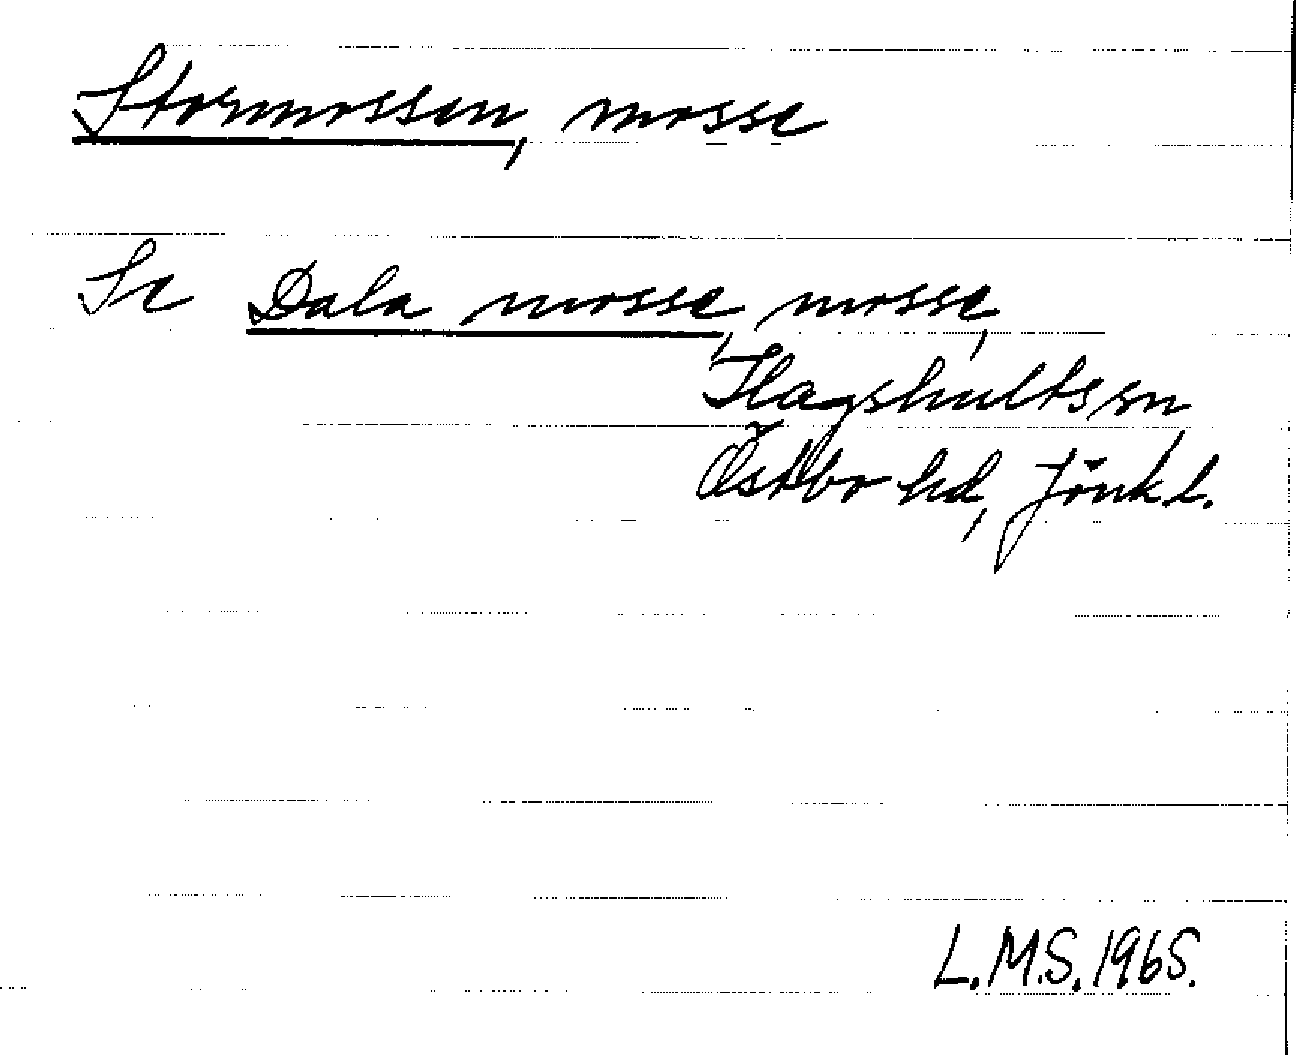 Stormossen, mosse
Se Dala mosse, mosse,
Hagshults sn
Östbo hd, Jönk l.
L.M.S. 1965.